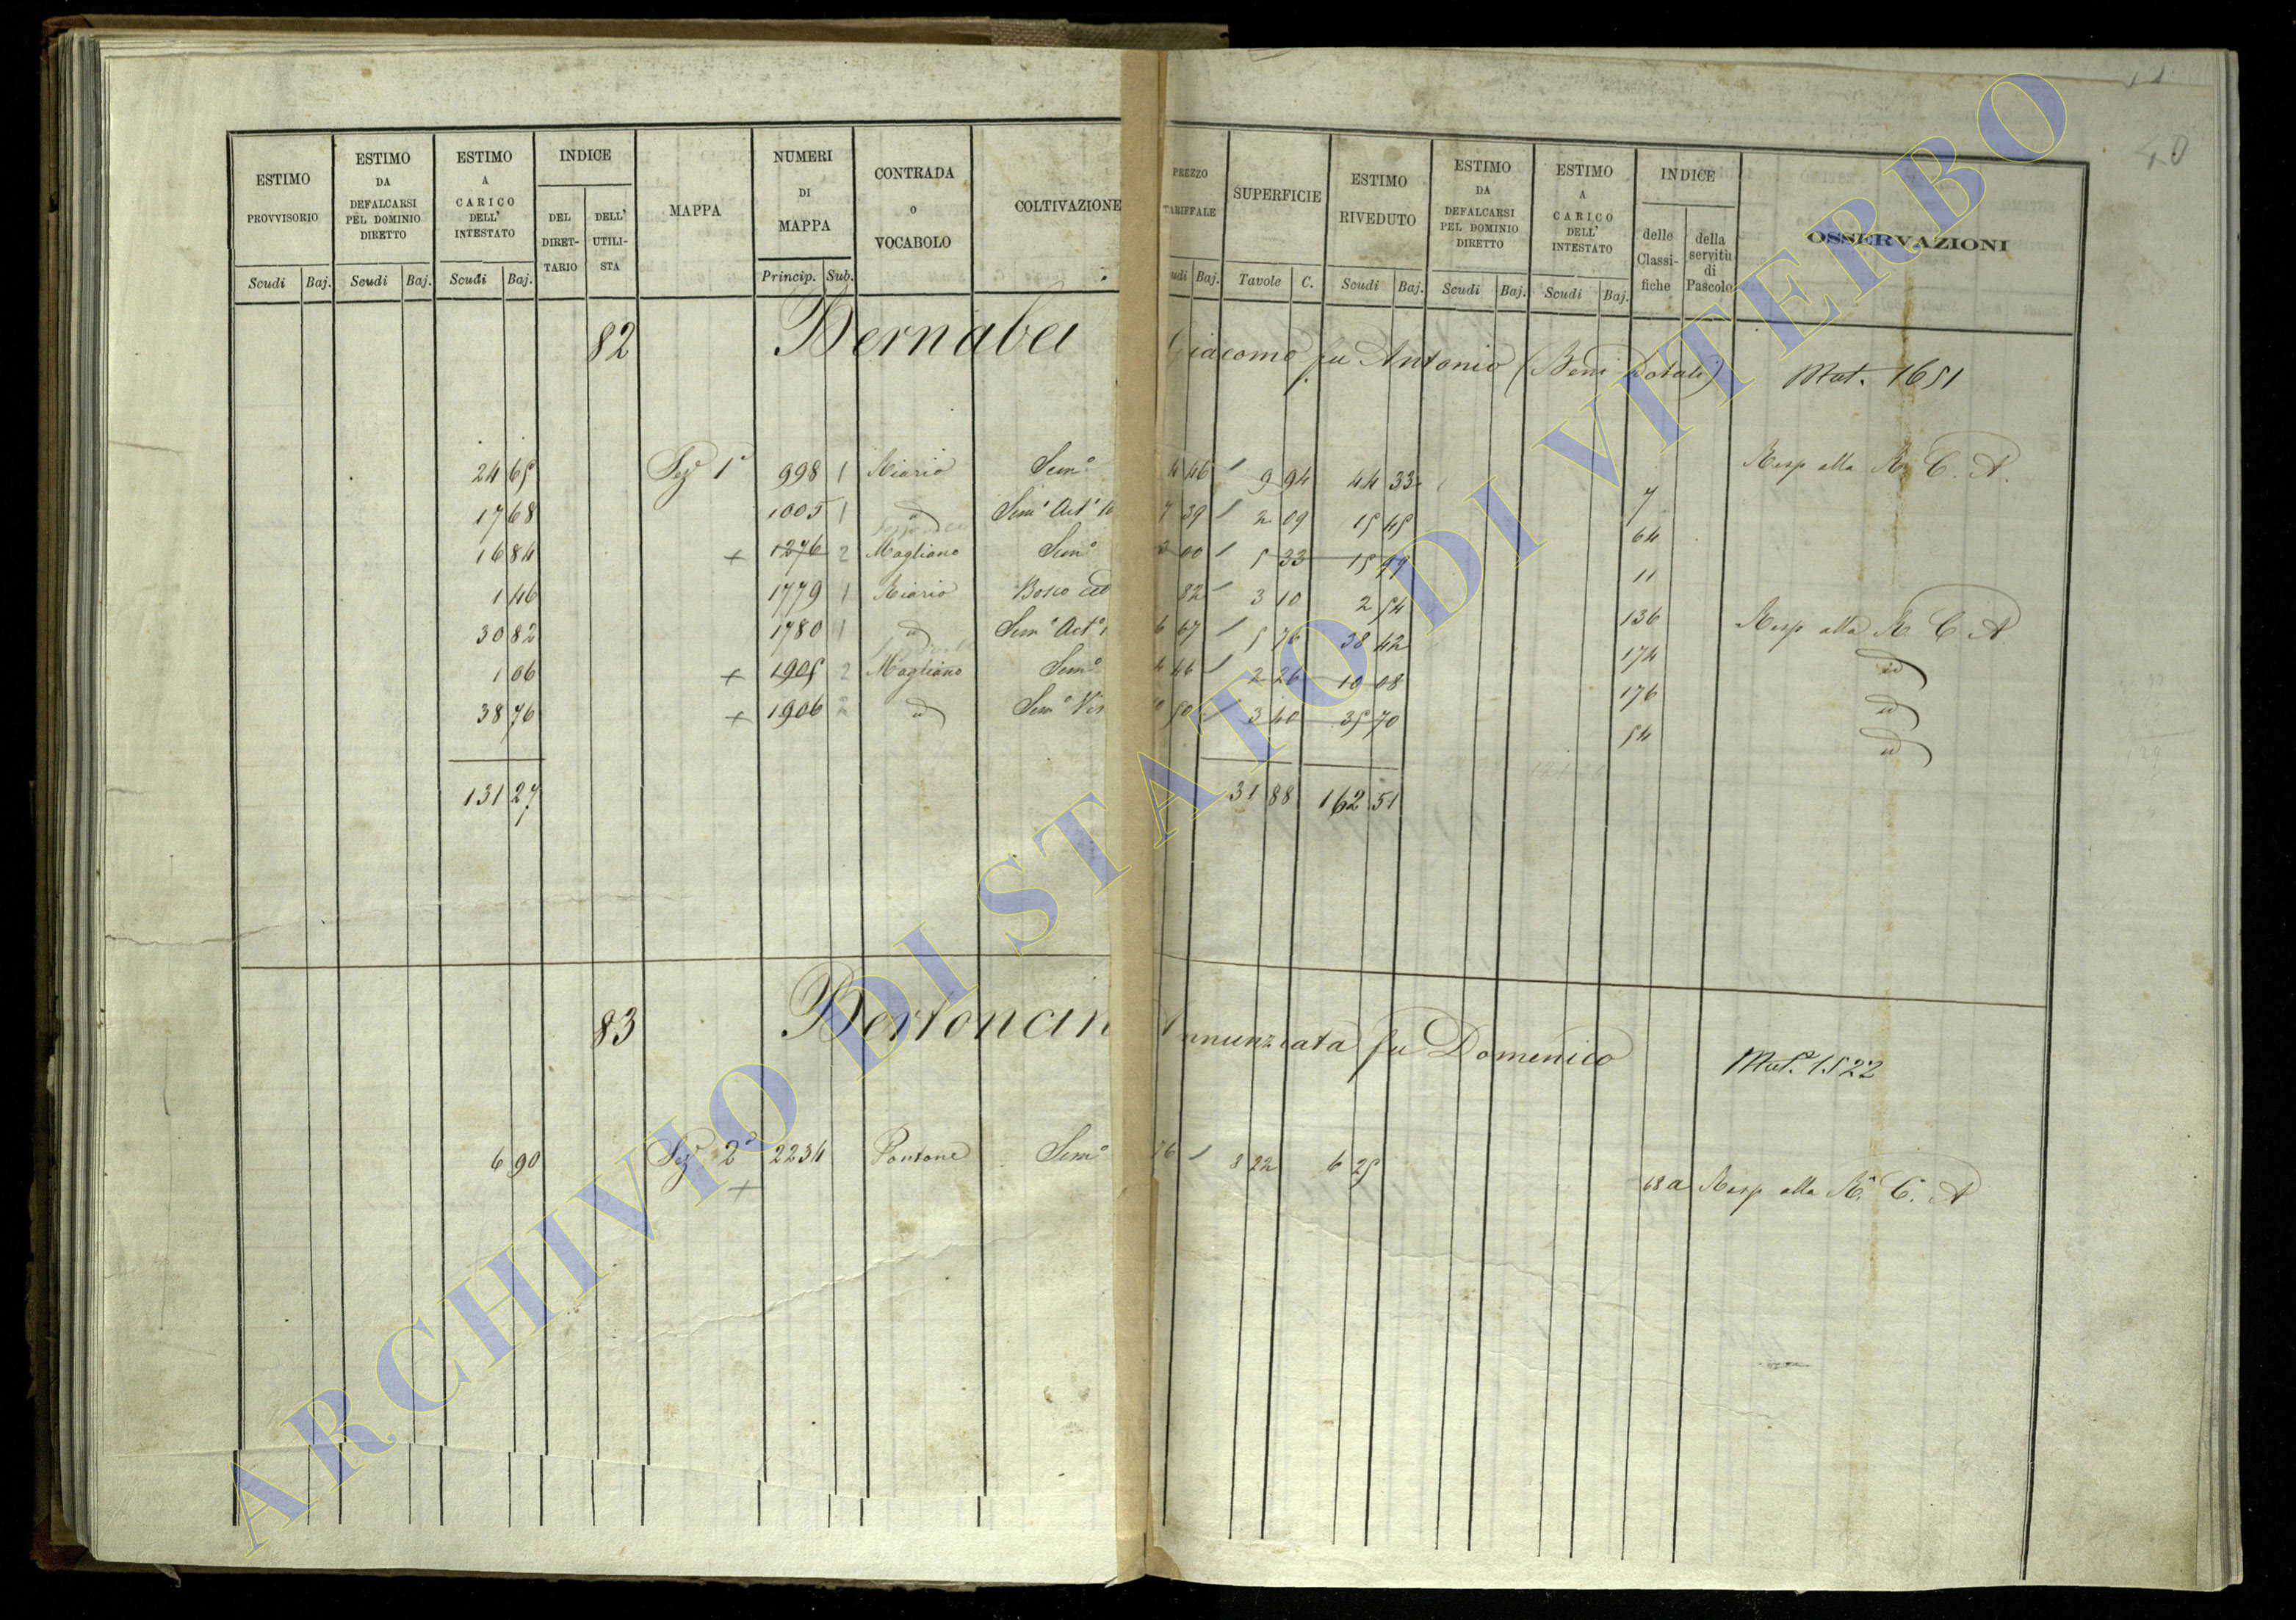 40
ESTIMO PROVVISORIO Scudi Baj.
ESTIMO DA DEFALCARSI PEL DOMINIO DIRETTO Scudi Baj.
ESTIMO A CARICO DELL' INTESTATO Scudi Baj.
INDICE DEL DIRETTARIO DELL' UTILISTA
MAPPA
NUMERI DI MAPPA Princip. Sub.
CONTRADA O VOCABOLO
COLTIVAZIONE
PREZZO TARIFFALE udi Baj.
SUPERFICIE Tavole C.
ESTIMO RIVEDUTO Scudi Baj.
ESTIMO DA DEFALCARSI PEL DOMINIO DIRETTO Scudi Baj.
ESTIMO A CARICO DELL' INTESTATO Scudi Baj.
INDICE delle Classifiche della servitù di Pascolo
OSSERVAZIONI
82 Bernabei Giacomo fu Antonio (Beni Dotali) Mut. 1651
24 65 Sez 1ª 998 1 Riario Semo 4 46 9 94 44 33 7 Resp alla R. C. A.
17 68 1005 1 id Semo Act 7 39 2 09 15 45 64
16 84 + 1276 2 Magliano Semo 3 00 5 33 15 99 11
1 46 1779 1 Riario Bosco ced 82 3 10 2 54 136 Resp alla R. C. A.
30 82 1780 1 id Semo Acto 6 67 5 76 38 42 174 id
1 06 + 1905 2 Magliano Semo 4 46 2 26 10 08 176 id
38 76 + 1906 2 id Semo Vit 10 50 3 40 35 70 54 id
131 27 31 88 162 51
83 Bertoncin Annunziata fu Domenico Mut. 1522
6 90 Sez 2ª 2234 Pontone Semo 76 8 22 6 25 68 a Resp alla R. C. A
+
ARCHIVIO DI STATO DI VITERBO